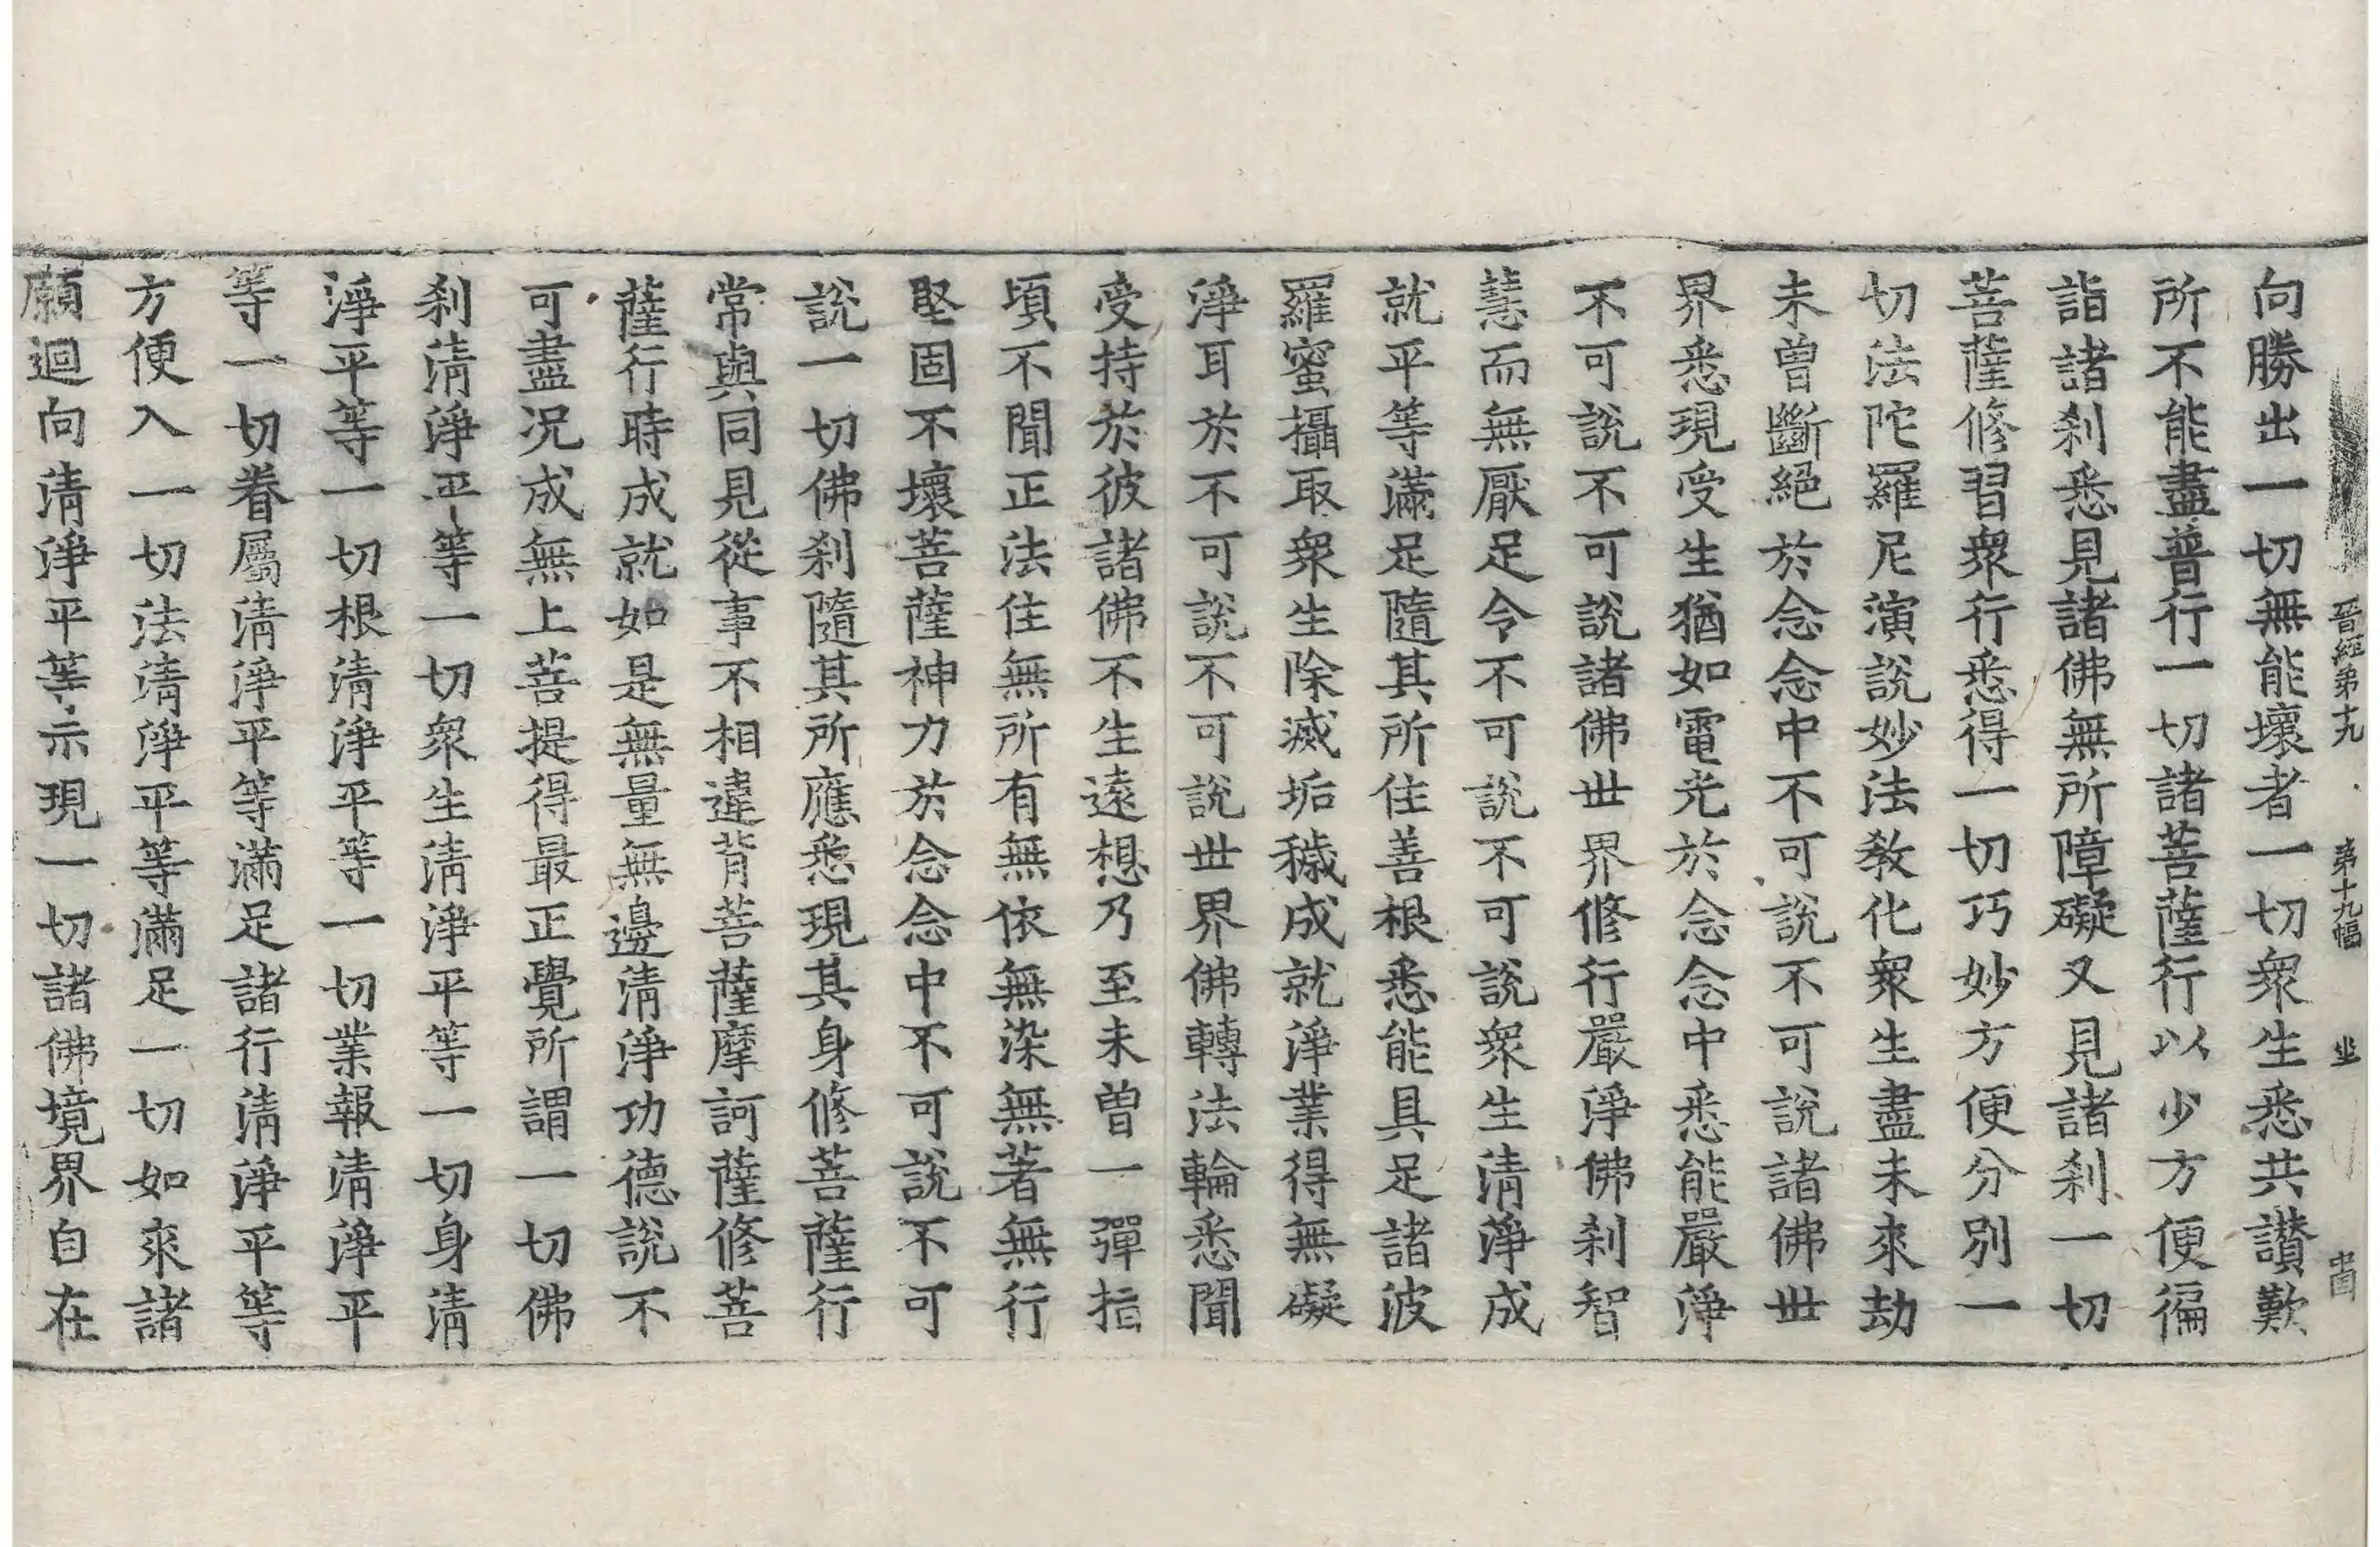 晉經第十九 第十九幅 坐
向勝出一切無能壞者一切衆生悉共讃歎
所不能盡普行一切諸菩薩行以少方便徧
詣諸刹悉見諸佛無所障礙又見諸刹一切
菩薩修習衆行悉得一切巧妙方便分別一
切法陀羅尼演說妙法教化衆生盡未來劫
未曾斷絕於念念中不可說不可說諸佛世
界悉現受生猶如電光於念念中悉能嚴淨
不可說不可說諸佛世界修行嚴淨佛刹智
慧而無厭足令不可說不可說衆生清淨成
就平等滿足隨其所住善根悉能具足諸波
羅蜜攝取衆生除滅垢穢成就淨業得無礙
淨耳於不可說不可說世界佛轉法輪悉聞
受持於彼諸佛不生遠想乃至未曾一彈指
頃不聞正法住無所有無依無染無著無行
堅固不壞菩薩神力於念念中不可說不可
說一切佛刹隨其所應悉現其身修菩薩行
常與同見從事不相違背菩薩摩訶薩修菩
薩行時成就如是無量無邊清淨功德說不
可盡况成無上菩提得最正覺所謂一切佛
刹清淨平等一切衆生清淨平等一切身清
淨平等一切根清淨平等一切業報清淨平
等一切眷屬清淨平等滿足諸行清淨平等
方便入一切法清淨平等滿足一切如來諸
願迴向清淨平等示現一切諸佛境界自在